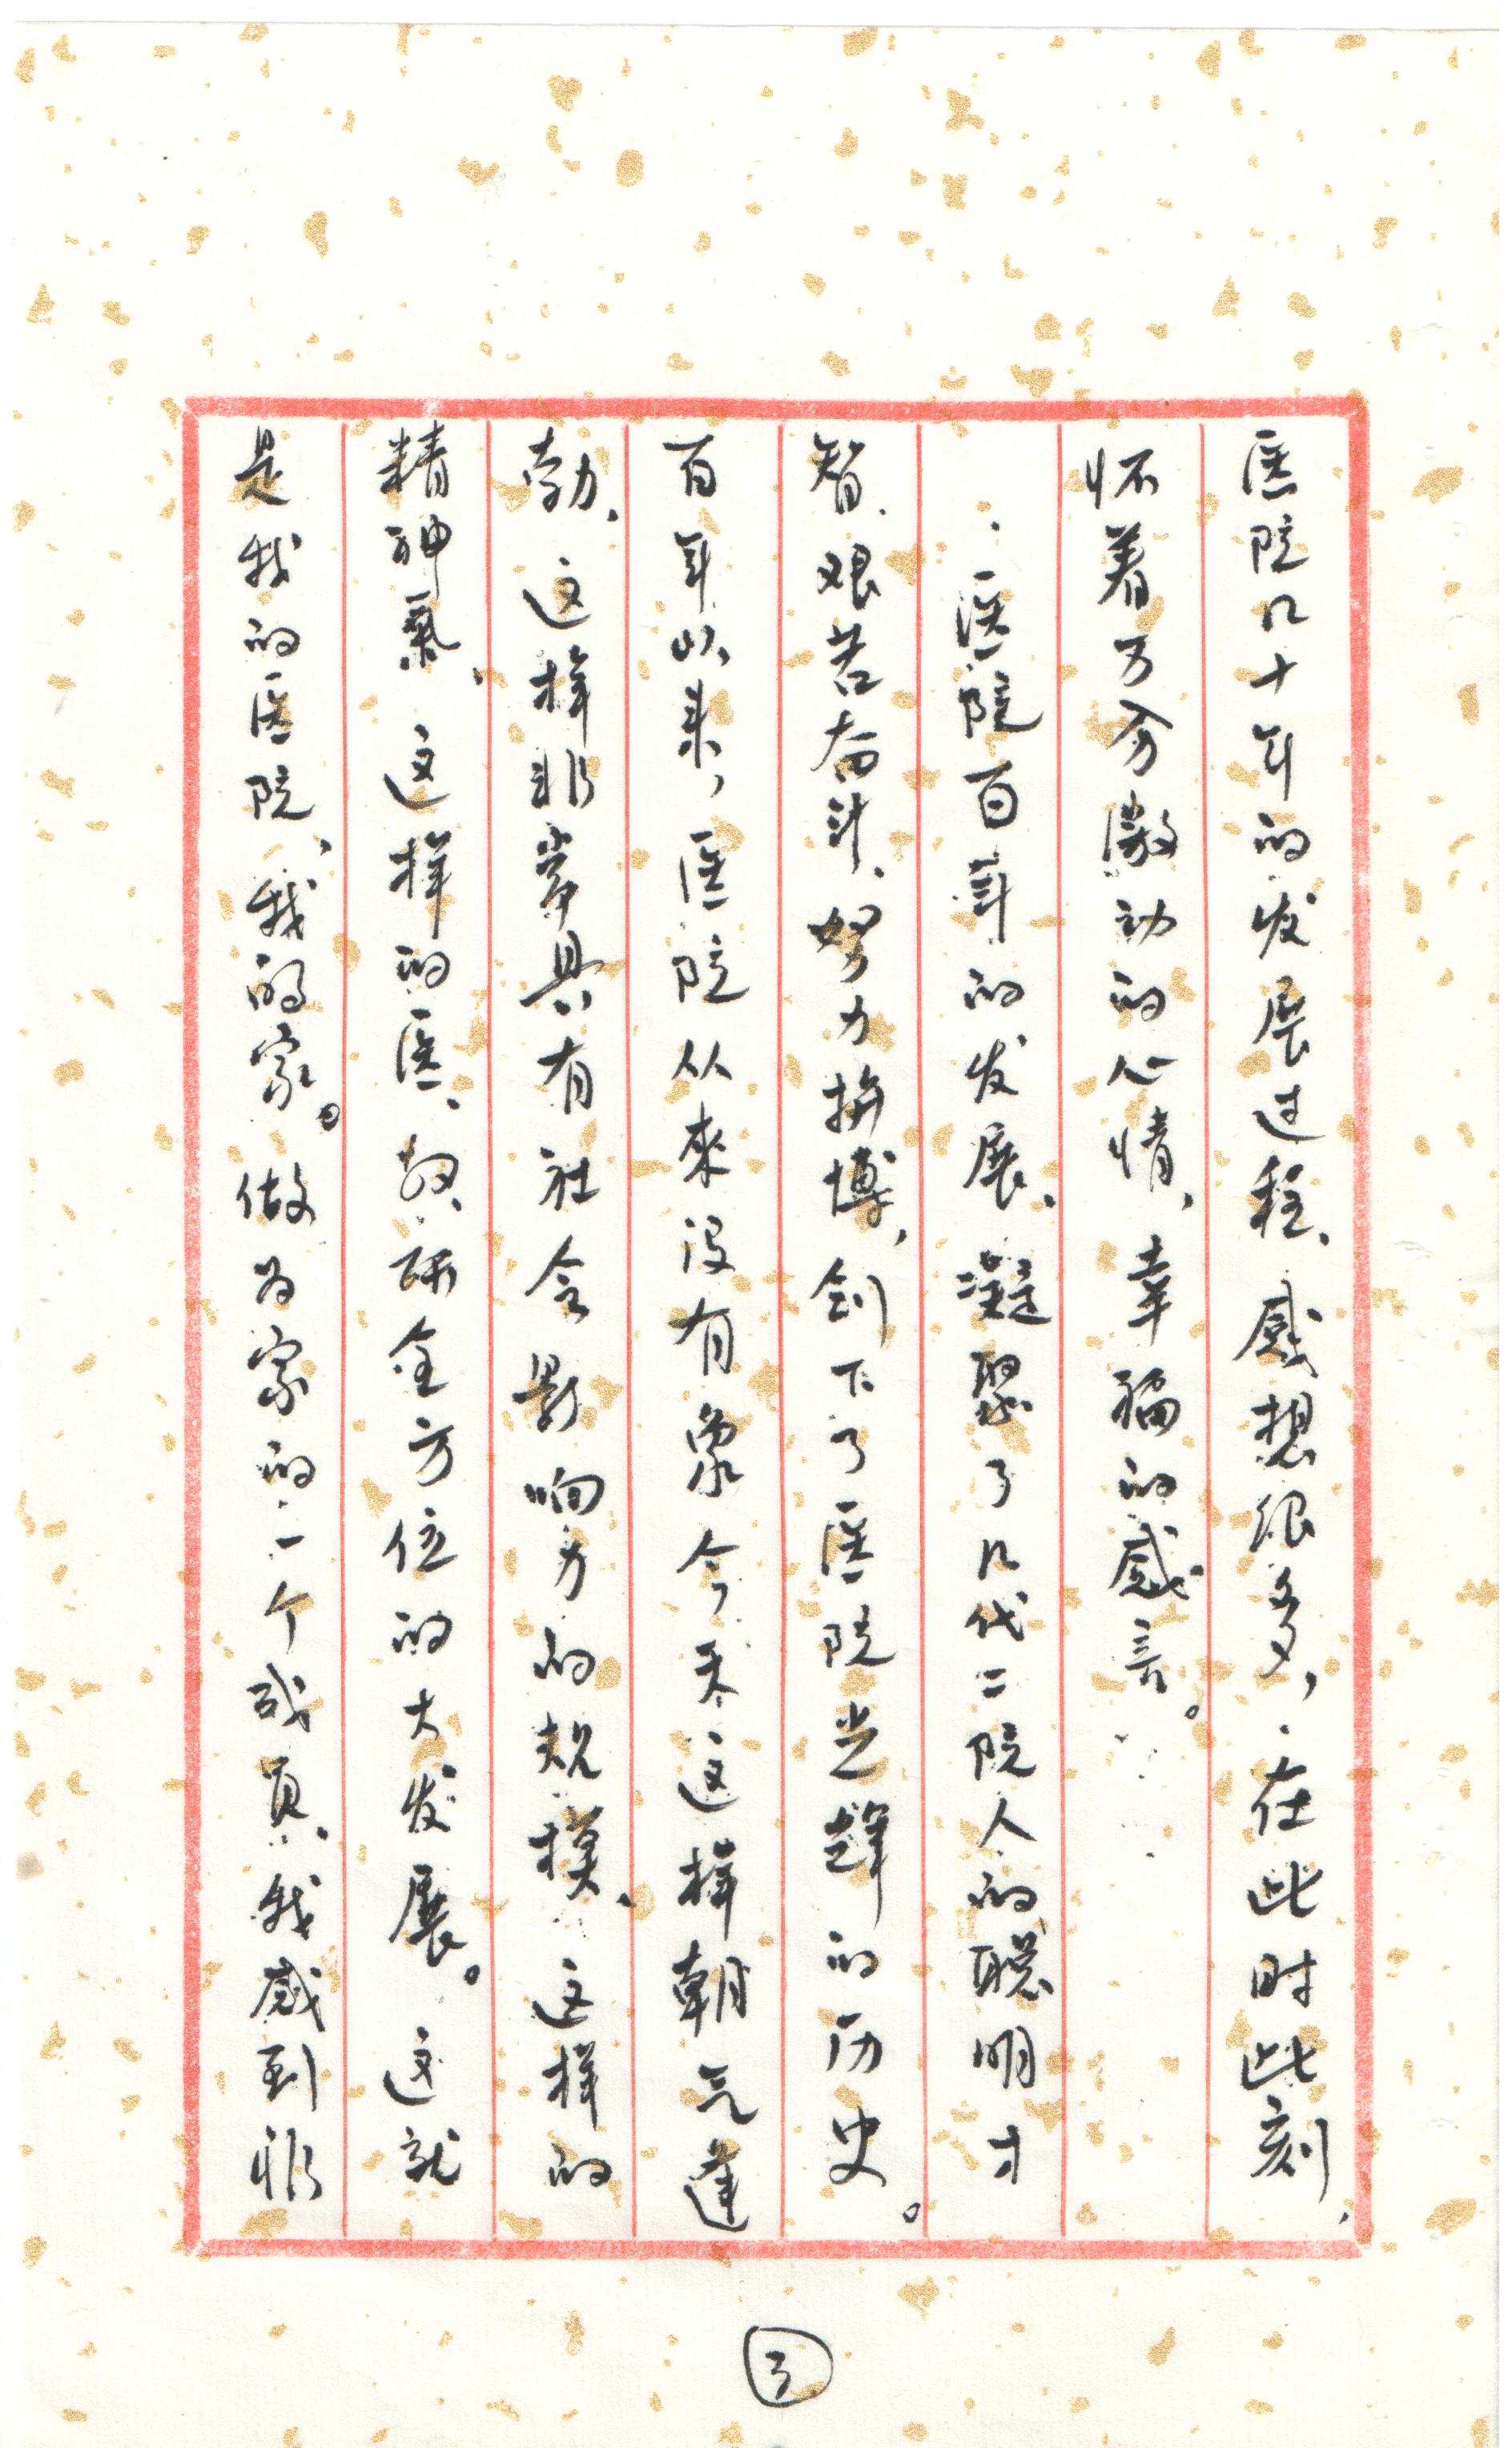 医院几十年的发展过程、感想很多，在此时此刻，
怀着万分激动的心情，幸福的感言。
医院百年的发展、凝聚了几代二院人的聪明才
智、艰苦奋斗、努力拚博，创下了医院光辉的历史。
百年以来，医院从來没有象今天这样朝气蓬
勃、这样非常具有社会影响力的规模、这样的
精神氣、这样的医、教、研全方位的大发展。这就
是我的医院、我的家。做为家的一个成员、我感到非
③